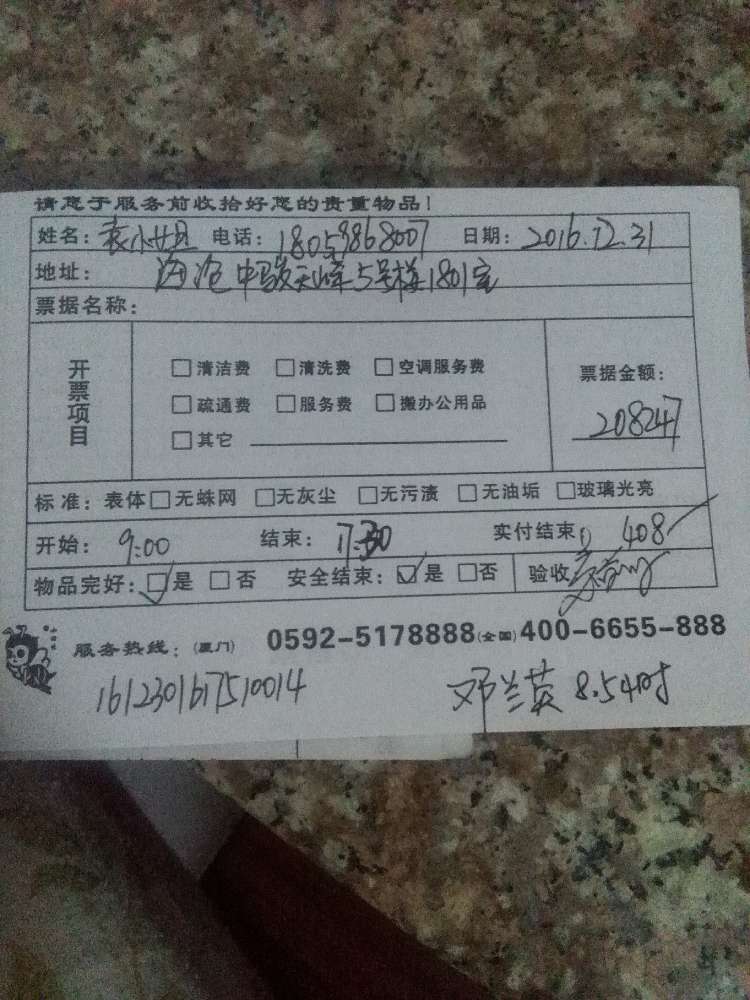 请您于服务前收拾好您的贵重物品!
姓名: 袁小姐 电话: 18059868007 日期: 2016.12.31
地址: 海沧中骏天峰5号楼1801室
票据名称:
开票项目
□清洁费 □清洗费 □空调服务费
□疏通费 □服务费 □搬办公用品
□其它
票据金额:
208247
标准: 表体□无蛛网 □无灰尘 □无污渍 □无油垢 □玻璃光亮
开始: 9:00 结束: 17:30 实付结束: 408
物品完好: ☑是 □否 安全结束: ☑是 □否 验收
服务热线: (厦门) 0592-5178888(全国)400-6655-888
1612301617510014 邓兰英 8.5小时